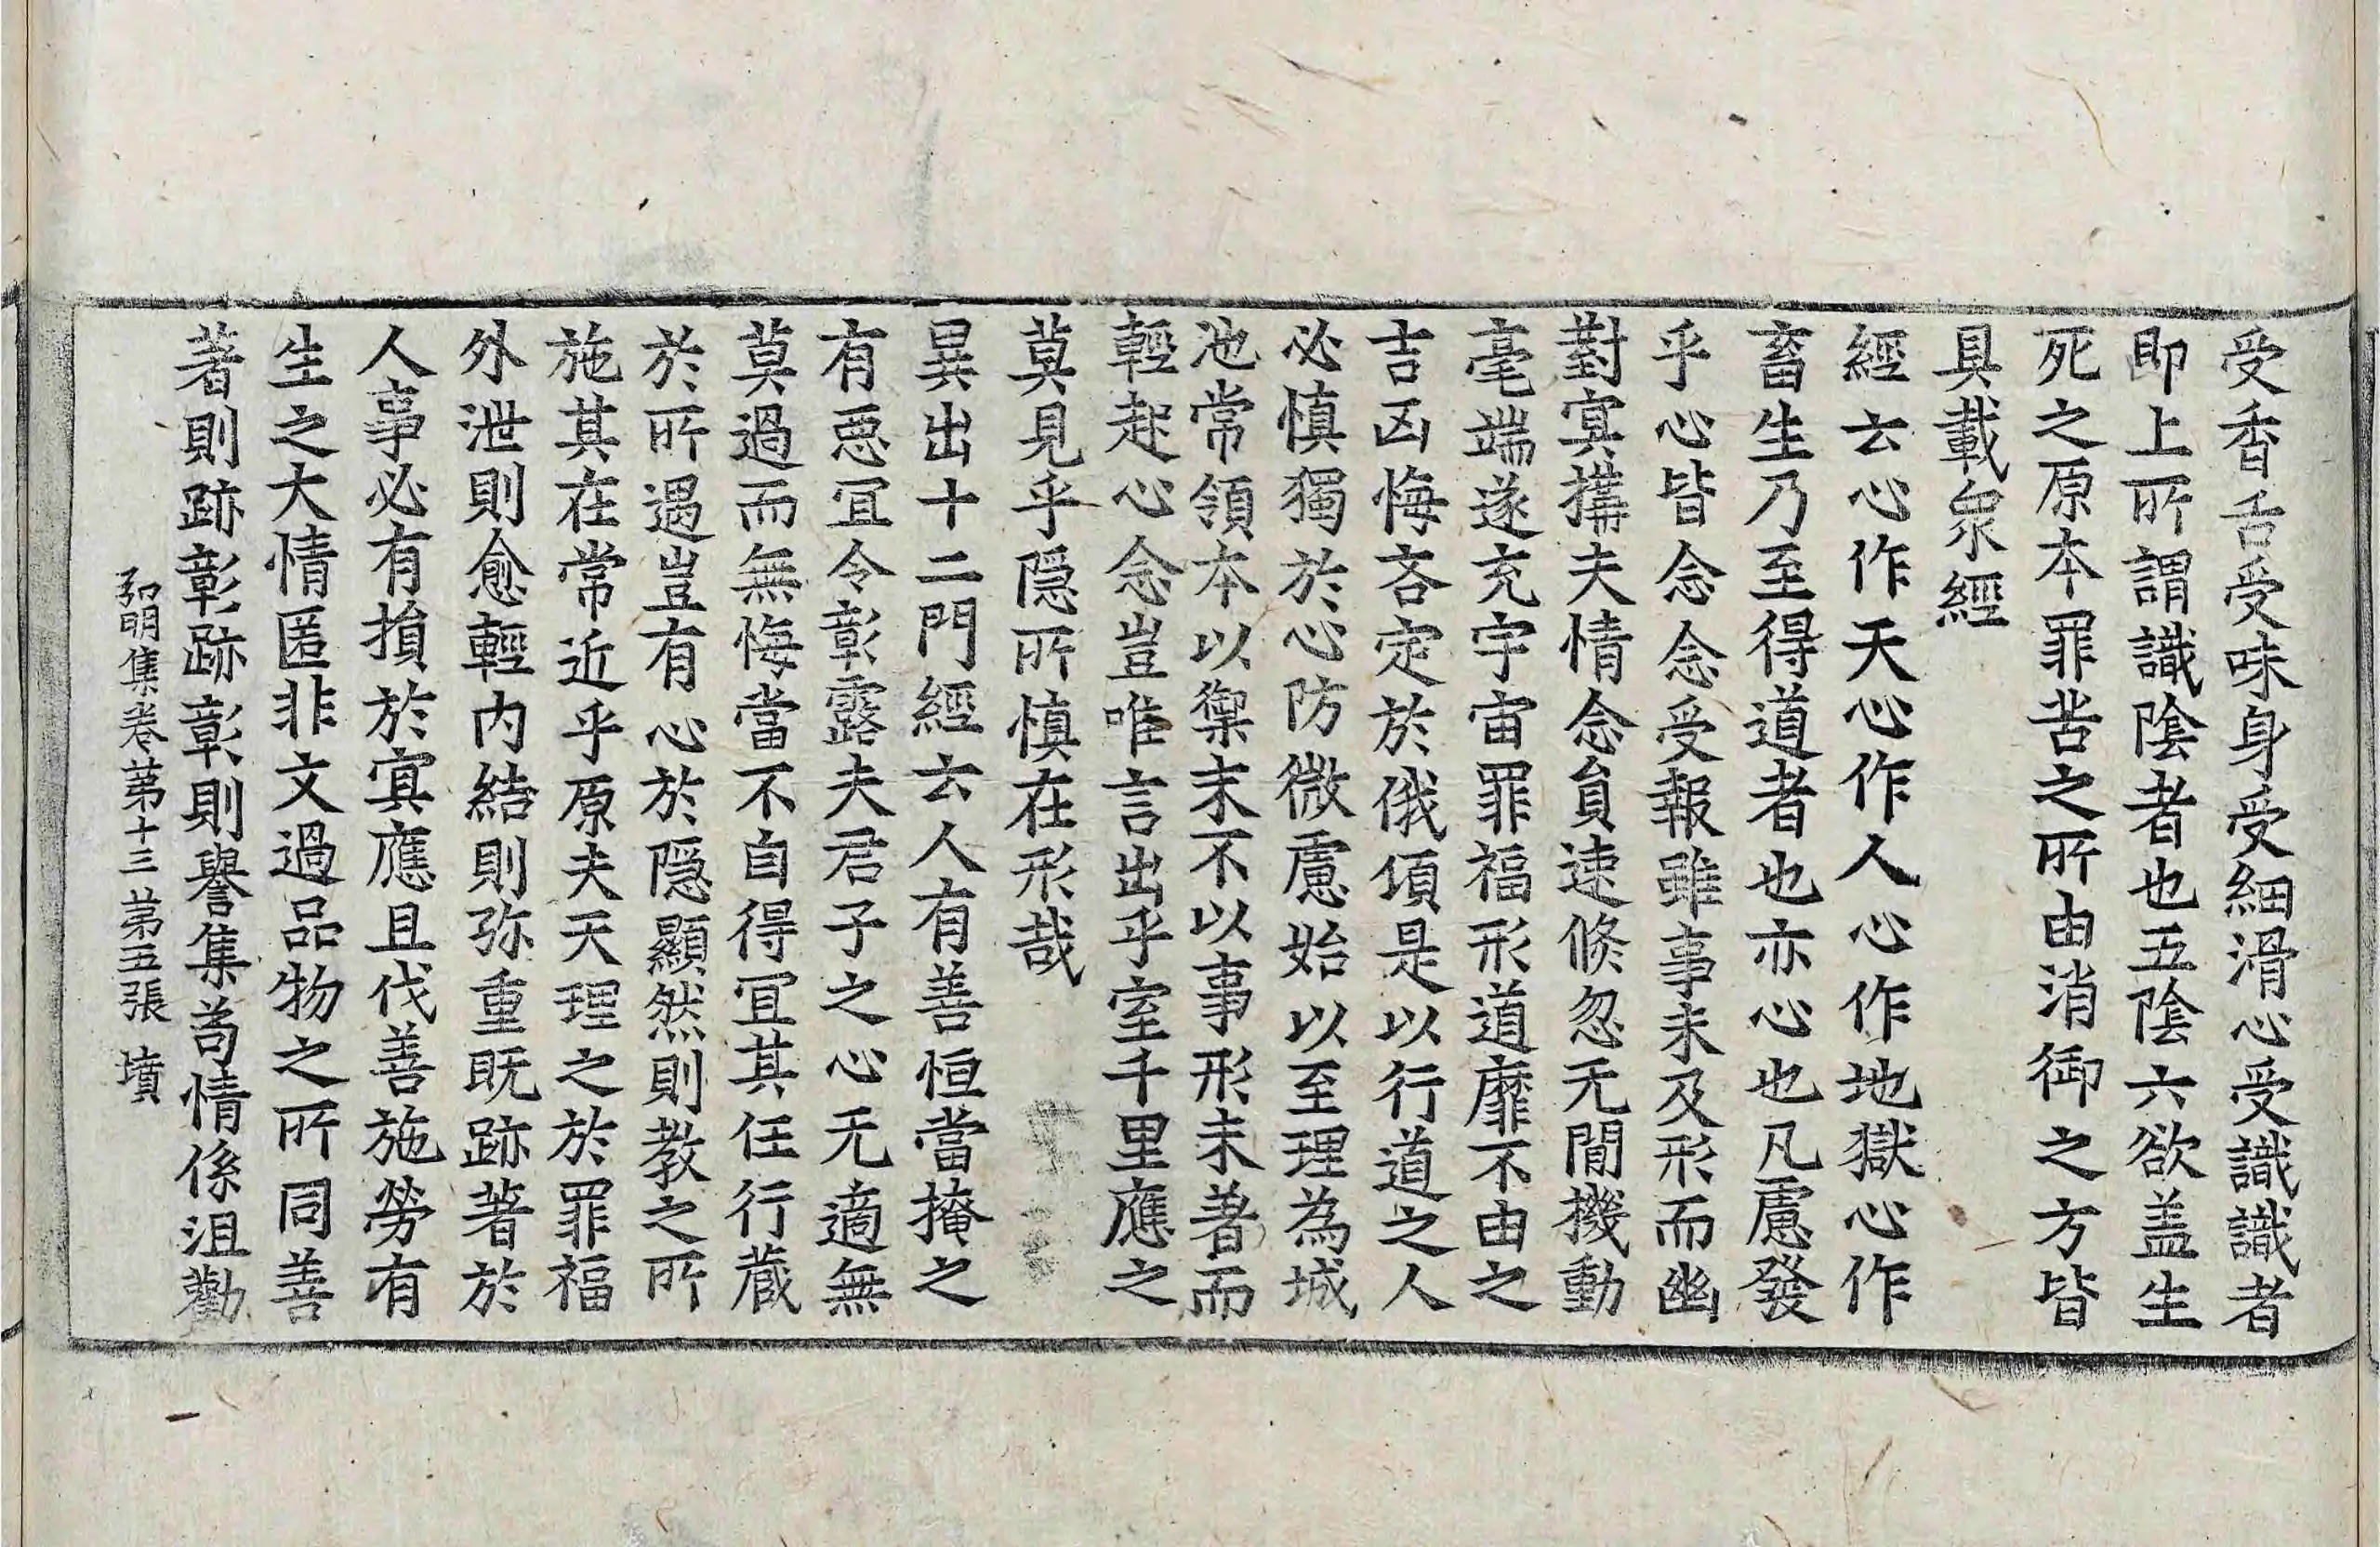 受香舌受味身受細滑心受識識者
即上所謂識陰者也五陰六欲盖生
死之原本罪苦之所由消御之方皆
具載衆經
經云心作天心作人心作地獄心作
畜生乃至得道者也亦心也凡慮發
乎心皆念念受報雖事未及形而幽
對冥搆夫情念貟速倐忽无閒機動
毫端遂充宇宙罪福形道靡不由之
吉凶悔吝定於俄頃是以行道之人
必慎獨於心防微慮始以至理為城
池常領本以禦末不以事形未著而
輕起心念豈唯言出乎室千里應之
莫見乎隱所慎在形哉
異出十二門經云人有善恒當掩之
有惡冝令彰露夫君子之心无適無
莫過而無悔當不自得冝其任行藏
於所遇豈有心於隱顯然則教之所
施其在常近乎原夫天理之於罪福
外泄則愈輕內結則弥重既跡著於
人事必有損於冥應且伐善施勞有
生之大情匿非文過品物之所同善
著則跡彰跡彰則譽集苟情係沮勸
弘明集卷第十三 第五張 墳